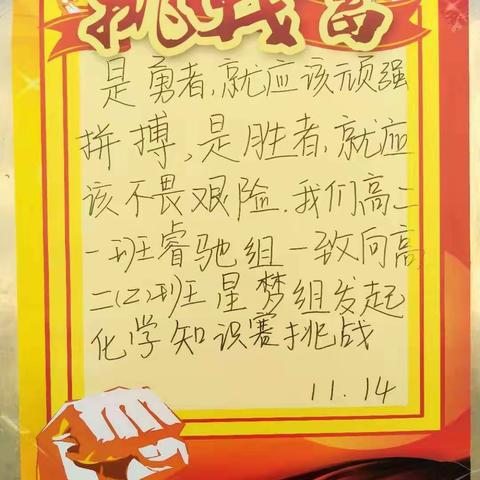 挑战书
是勇者,就应该顽强
拼搏,是胜者,就应
该不畏艰险.我们高二
一班睿驰组一致向高
二(2)班星梦组发起
化学知识赛挑战
11.14